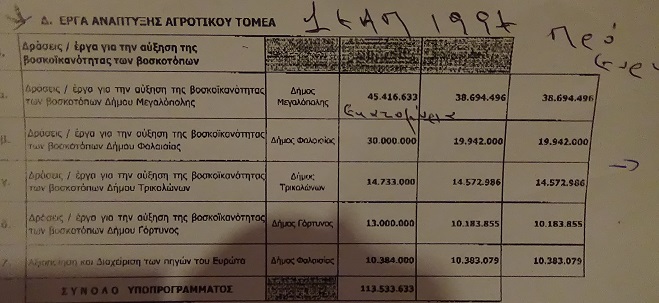 Δ. ΕΡΓΑ ΑΝΑΠΤΥΞΗΣ ΑΓΡΟΤΙΚΟΥ ΤΟΜΕΑ 1 ΚΑΠ 1997
Δράσεις / έργα για την αύξηση της
βοσκοϊκανότητας των βοσκοτόπων
α. Δράσεις / έργο για την αύξηση της βοσκοϊκανότητας των βοσκοτόπων Δήμου Μεγαλόπολης Δήμος Μεγαλόπολης 45.416.633 38.694.496 38.694.496
εκατομύρια
β. Δράσεις / έργο για την αύξηση της βοσκοϊκανότητας των βοσκοτόπων Δήμου Φαλαισίας Δήμος Φαλαισίας 30.000.000 19.942.000 19.942.000
γ. Δράσεις / έργο για την αύξηση της βοσκοϊκανότητας των βοσκοτόπων Δήμου Τρικολώνων Δήμος Τρικολώνων 14.733.000 14.572.986 14.572.986
δ. Δράσεις / έργο για την αύξηση της βοσκοϊκανότητας των βοσκοτόπων Δήμου Γόρτυνος Δήμος Γόρτυνος 13.000.000 10.183.855 10.183.855
Αξιοποίηση και Διαχείριση των πηγών του Ευρώτα Δήμος Φαλαισίας 10.384.000 10.383.079 10.383.079
ΣΥΝΟΛΟ ΥΠΟΠΡΟΓΡΑΜΜΑΤΟΣ 113.533.633